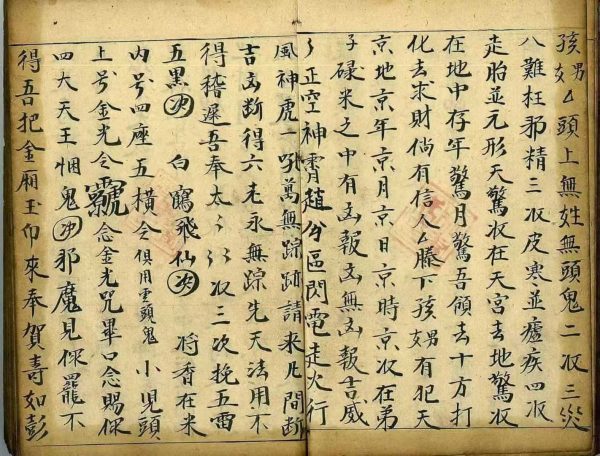 孩男女厶頭上無姓無頭鬼二收三災
八難枉邪精三收皮寒並瘧疾四收
走胎並元形天驚收在天宮去地驚收
在地中存年驚月驚吾領去十方打
化去求財倘有信人厶膝下孩男女有犯天
京地京年京月京日京時京收在弟
子碌米之中有凶報凶無凶報吉威
正空神霄趙分區閃電走火行
風神虎一吼萬無踪跡請来凡間斷
吉凶斷得六老永無踪先天法用不
得稽遲吾奉太 收三次挽五雷
五黑 白鶴飛仙 将香在米
内号四座五横令俱用雲頭鬼小児頭
上号金光令 念金光咒畢口念賜保
四大天王悃鬼 邪魔見保罷不
得吾把金厢玉印來奉賀壽如彭